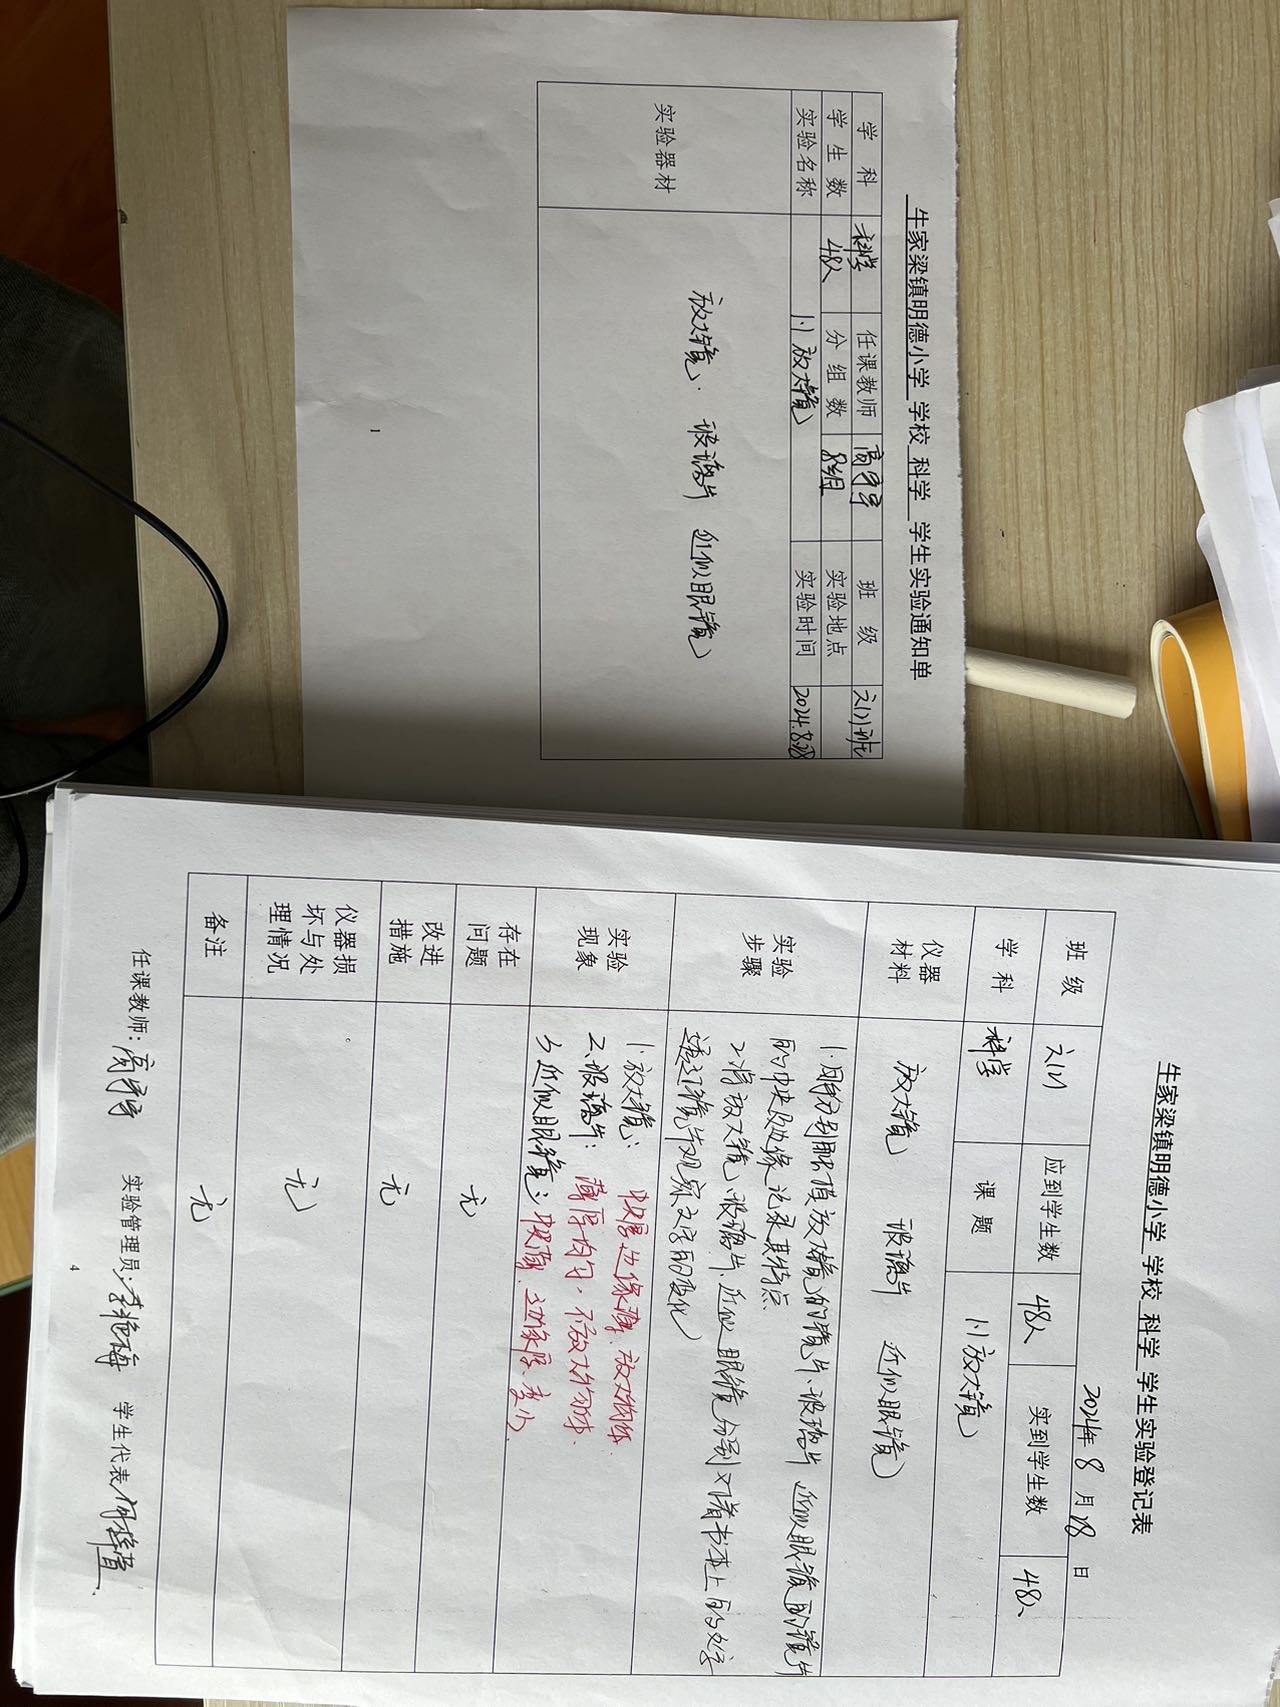 牛家梁镇明德小学 学校 科学 学生实验通知单
学 科 科学 任课教师 班 级 六(1)班
学生数 48人 分组数 8组 实验地点
实验名称 1.1放大镜 实验时间 2024.8.28
实验器材 放大镜. 玻璃片 近似眼镜
1
牛家梁镇明德小学 学校 科学 学生实验登记表
2024年 8 月 28 日
班 级 六(1) 应到学生数 48人 实到学生数 48人
学 科 科学 课 题 1.1放大镜
仪器材料 放大镜 玻璃片 近似眼镜
实验步骤
1.用手分别触摸放大镜的镜片、玻璃片 近似眼镜的镜片
的中央及边缘记录其特点
2.将放大镜、玻璃片、近似眼镜分别对着书本上的文字
透过镜片观察文字的变化
实验现象
1.放大镜: 中央厚边缘薄, 放大物体
2.玻璃片: 薄厚均匀, 不放大物体.
3.近似眼镜: 中央薄、边缘厚、变小
存在问题 无
改进措施 无
仪器损坏与处理情况 无
备注 无
任课教师: 实验管理员:李艳梅 学生代表
4